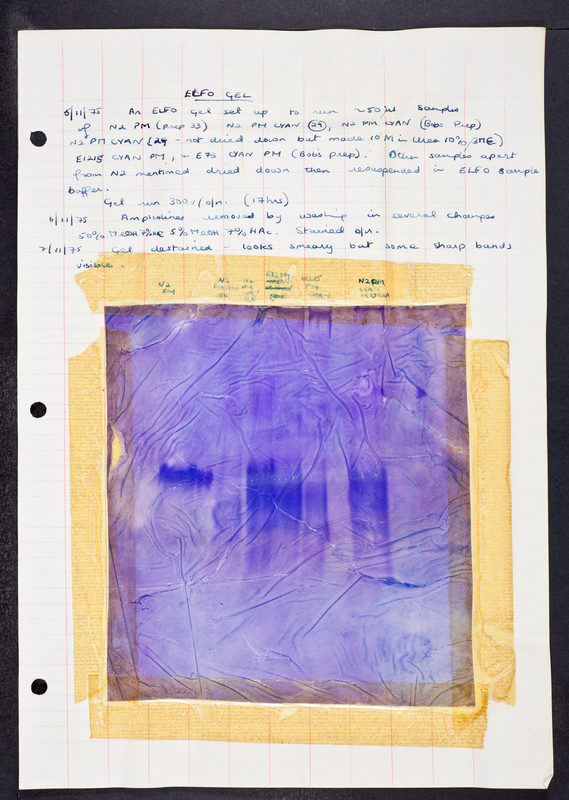 ELFO GEL
5/11/75 An ELFO gel set up to run ~50µl samples
of N2 PM (prep 33) N2 PM CYAN (29), N2 PM CYAN (Bobs Prep)
N2 PM CYAN (29 - not dried down but made 10M in Urea 10% 2ME)
E1215 CYAN PM, + E73 CYAN PM (Bob's prep). Other samples apart
from N2 mentioned dried down then resuspended in ELFO sample
buffer.
Gel run 300v/o/n. (17hrs)
6/11/75 Ampholines removed by washing in several changes
50% MeOH 5% MeOH 7% HAc. Stained o/n.
7/11/75 Gel destained - looks smeary but some sharp bands
visible.
N2 PM
N2
CYAN
N2 PM
CYAN
IN UREA